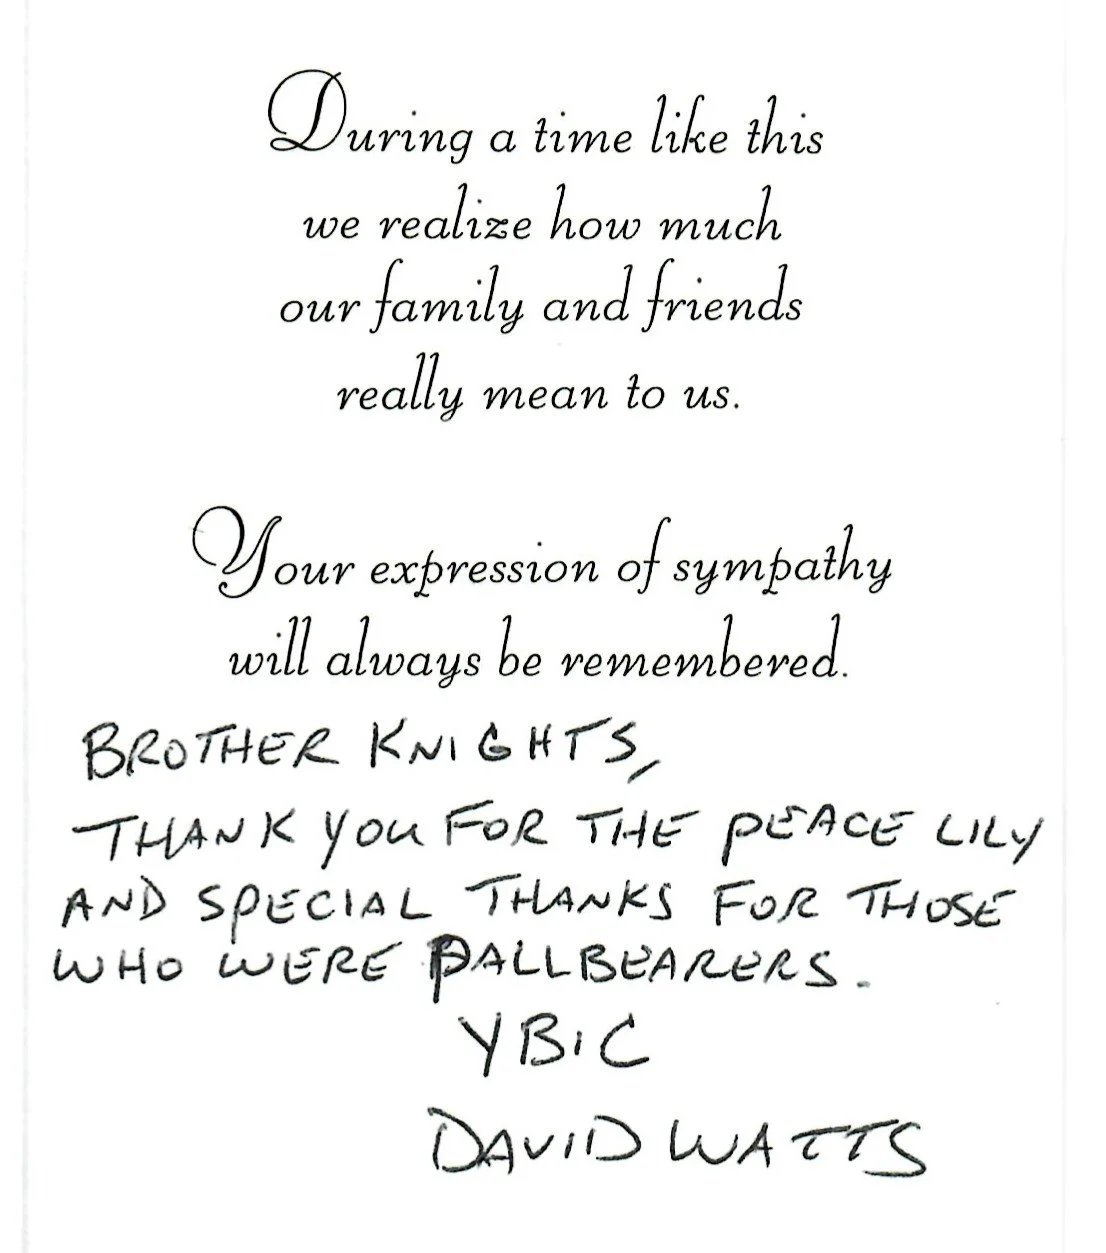 During a time like this
we realize how much
our family and friends
really mean to us.
Your expression of sympathy
will always be remembered.
BROTHER KNIGHTS,
THANK YOU FOR THE PEACE LILY
AND SPECIAL THANKS FOR THOSE
WHO WERE PALLBEARERS.
YBIC
DAVID WATTS